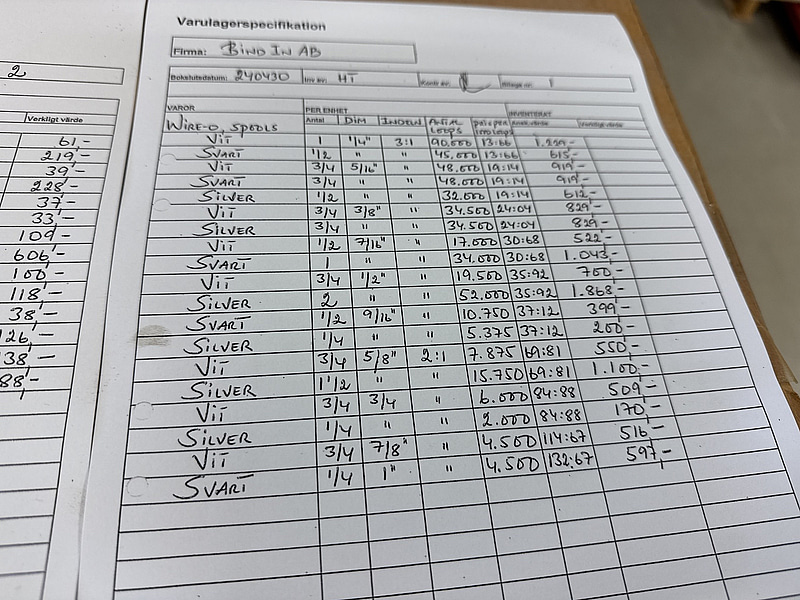 2
Verkligt värde
61,-
219,-
39,-
228,-
37,-
33,-
109,-
606,-
100,-
118,-
38,-
26,-
38,-
88,-
Varulagerspecifikation
Firma: BIND IN AB
Bokslutsdatum: 240430 Inv av: HT
VAROR PER ENHET INVENTERAT
Antal DIM INDELN ANTAL LOOPS
WIRE-O, SPOOLS
VIT 1 1/4" 3:1 90.000 13:66 1.229,-
SVART 1/2 " " 45.000 13:66 615,-
VIT 3/4 5/16" " 48.000 19:14 919,-
SVART 3/4 " " 48.000 19:14 919,-
SILVER 1/2 " " 32.000 19:14 612,-
VIT 3/4 3/8" " 34.500 24:04 829,-
SILVER 3/4 " " 34.500 24:04 829,-
VIT 1/2 7/16" " 17.000 30:68 522,-
SVART 1 " " 34.000 30:68 1.043,-
VIT 3/4 1/2" " 19.500 35:92 700,-
SILVER 2 " " 52.000 35:92 1.868,-
SVART 1/2 9/16" " 10.750 37:12 399,-
SILVER 1/4 " " 5.375 37:12 200,-
VIT 3/4 5/8" 2:1 7.875 69:81 550,-
SILVER 1 1/2 " " 15.750 69:81 1.100,-
VIT 3/4 3/4 " 6.000 84:88 509,-
SILVER 1/4 " " 2.000 84:88 170,-
VIT 3/4 7/8" " 4.500 114:67 516,-
SVART 1/4 1" " 4.500 132:67 597,-